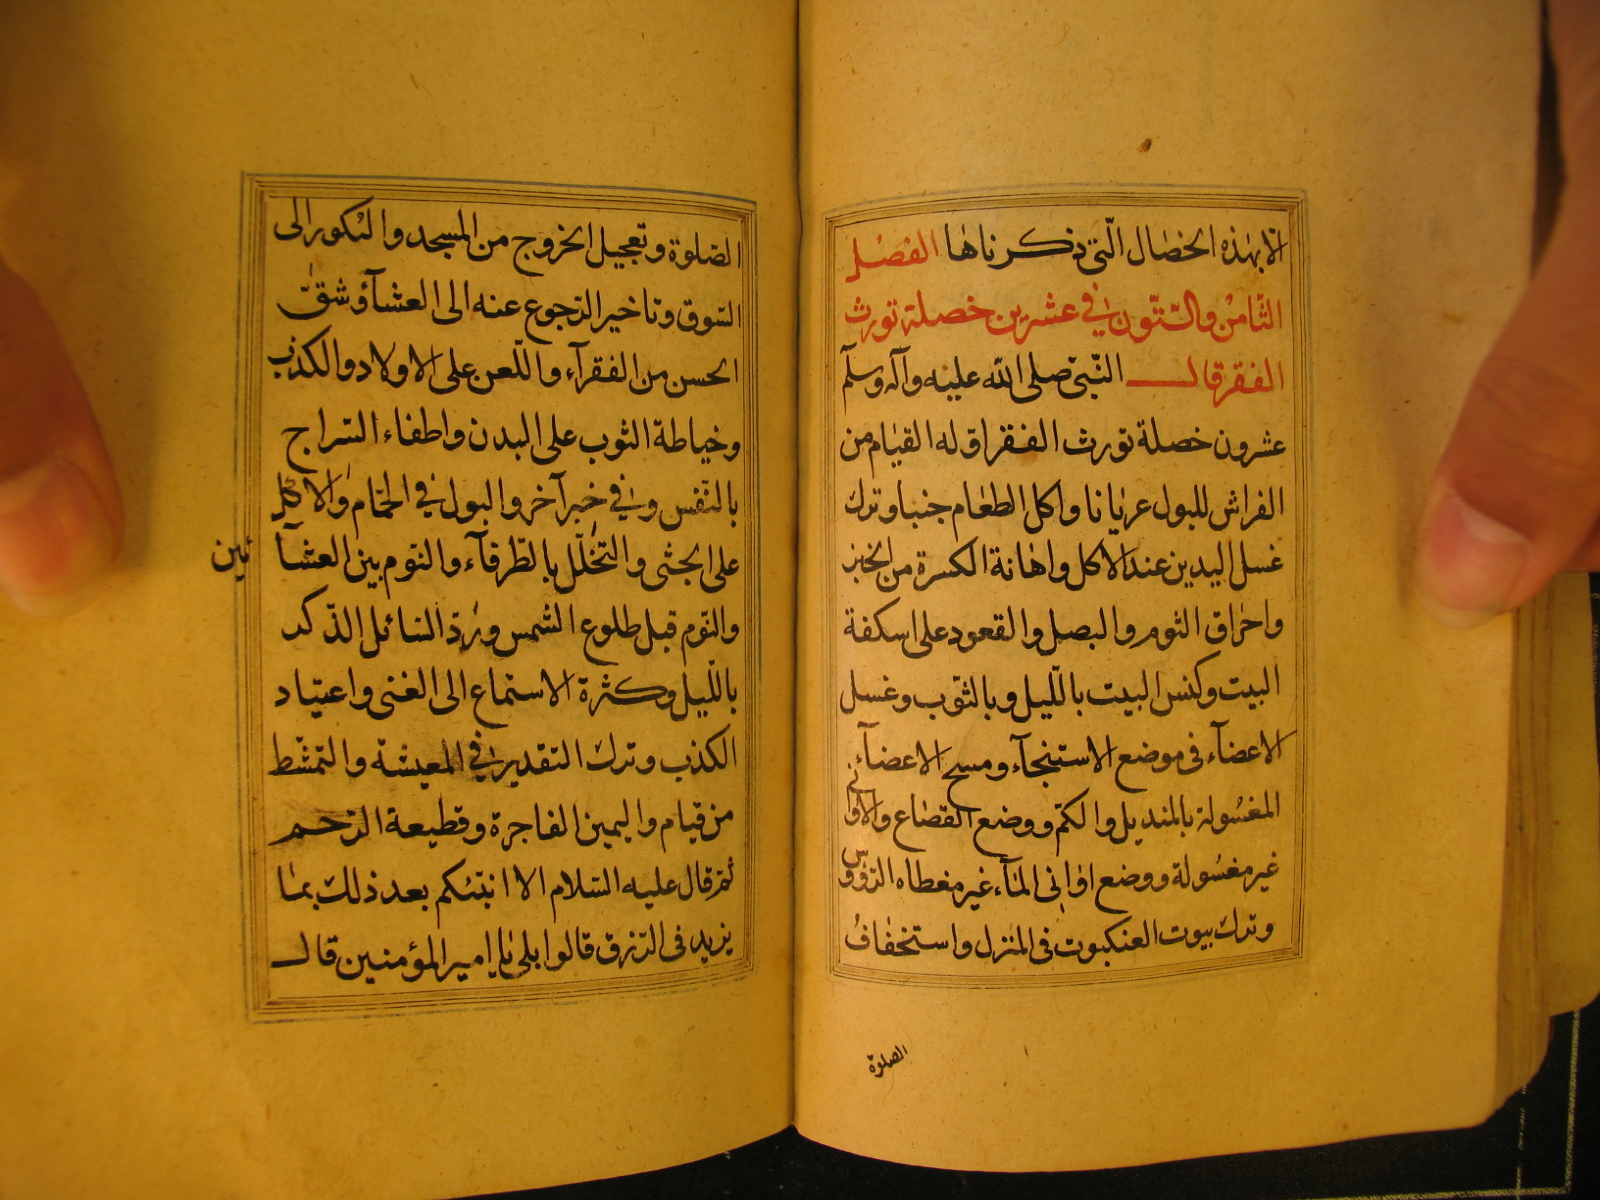 الا بهذه الخصال الّتى ذكرناها الفصل
الثّامن والستّون فى عشرين خصلة تورث
الفقر قال النّبىّ صلى الله عليه وآله وسلّم
عشرون خصلة تورث الفقر اوّله القيام من
الفراش للبول عريانا واكل الطعام جنبا وترك
غسل اليدين عند الاكل واهانة الكسرة من الخبز
واحراق الثوم والبصل والقعود على اسكفة
البيت وكنس البيت باللّيل وبالثّوب وغسل
الاعضآء فى موضع الاستنجآء ومسح الاعضآء
المغسولة بالمنديل والكمّ ووضع القصاع والاوانى
غير مغسولة ووضع اوانى المآء غير مغطاه الرّؤوس
وترك بيوت العنكبوت فى المنزل واستخفاف
الصلوة
الصّلوة وتعجيل الخروج من المسجد والبكور الى
السّوق وتاخير الرّجوع عنه الى العشآء وشقّ
الحسن من الفقرآء واللّعن على الاولاد والكذب
وخياطة الثوب على البدن واطفاء السّراج
بالنّفس وفى خبر آخر والبول فى الحمّام والاكل
على الجثى والتخلّل بالطّرفآء والنّوم بين العشآئين
والنّوم قبل طلوع الشمس وردّ السّائل الذّكر
باللّيل وكثرة الاستماع الى الغنى واعتياد
الكذب وترك التقدير فى المعيشة والتمشّط
من قيام واليمين الفاجرة وقطيعة الرّحم
ثمّ قال عليه السّلام الا انبّئكم بعد ذلك بما
يزيد فى الرّزق قالوا بلى يا امير المؤمنين قال